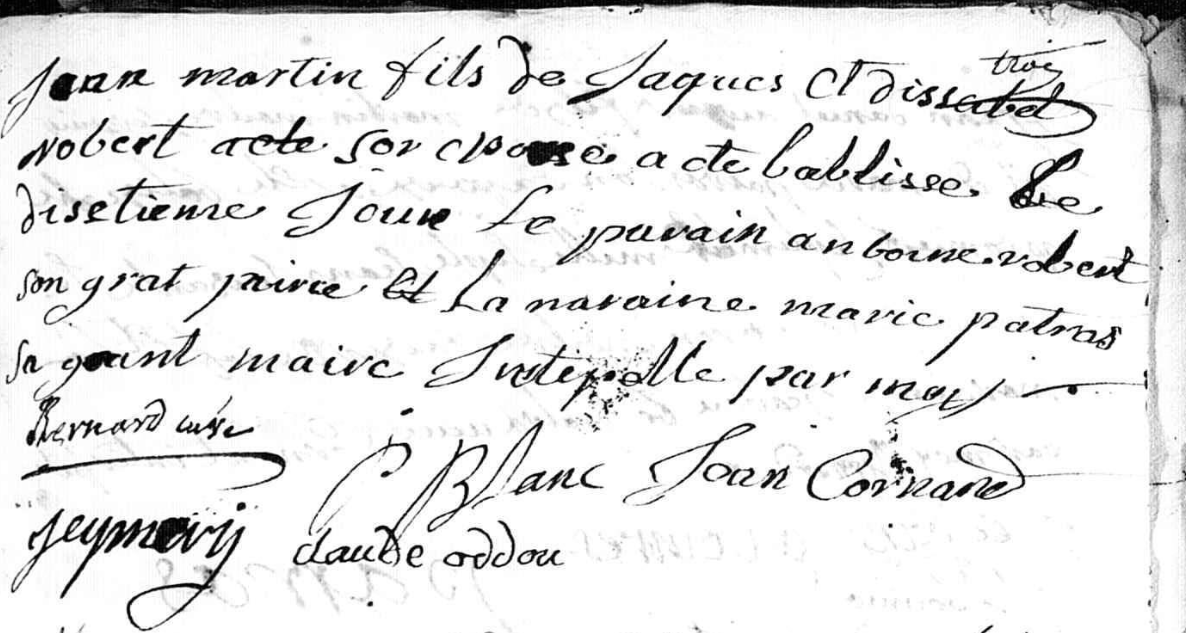 Jean martin fils de Jaques Et dissabel troy
robert acte son epouse a ete babtisse Le
disetieme Jour Le parain anboine robert
son grat paire Et La naraine marie patras
sa grant maire par moy
Bernard curé
P Blanc Jean Cornand
claude oddou